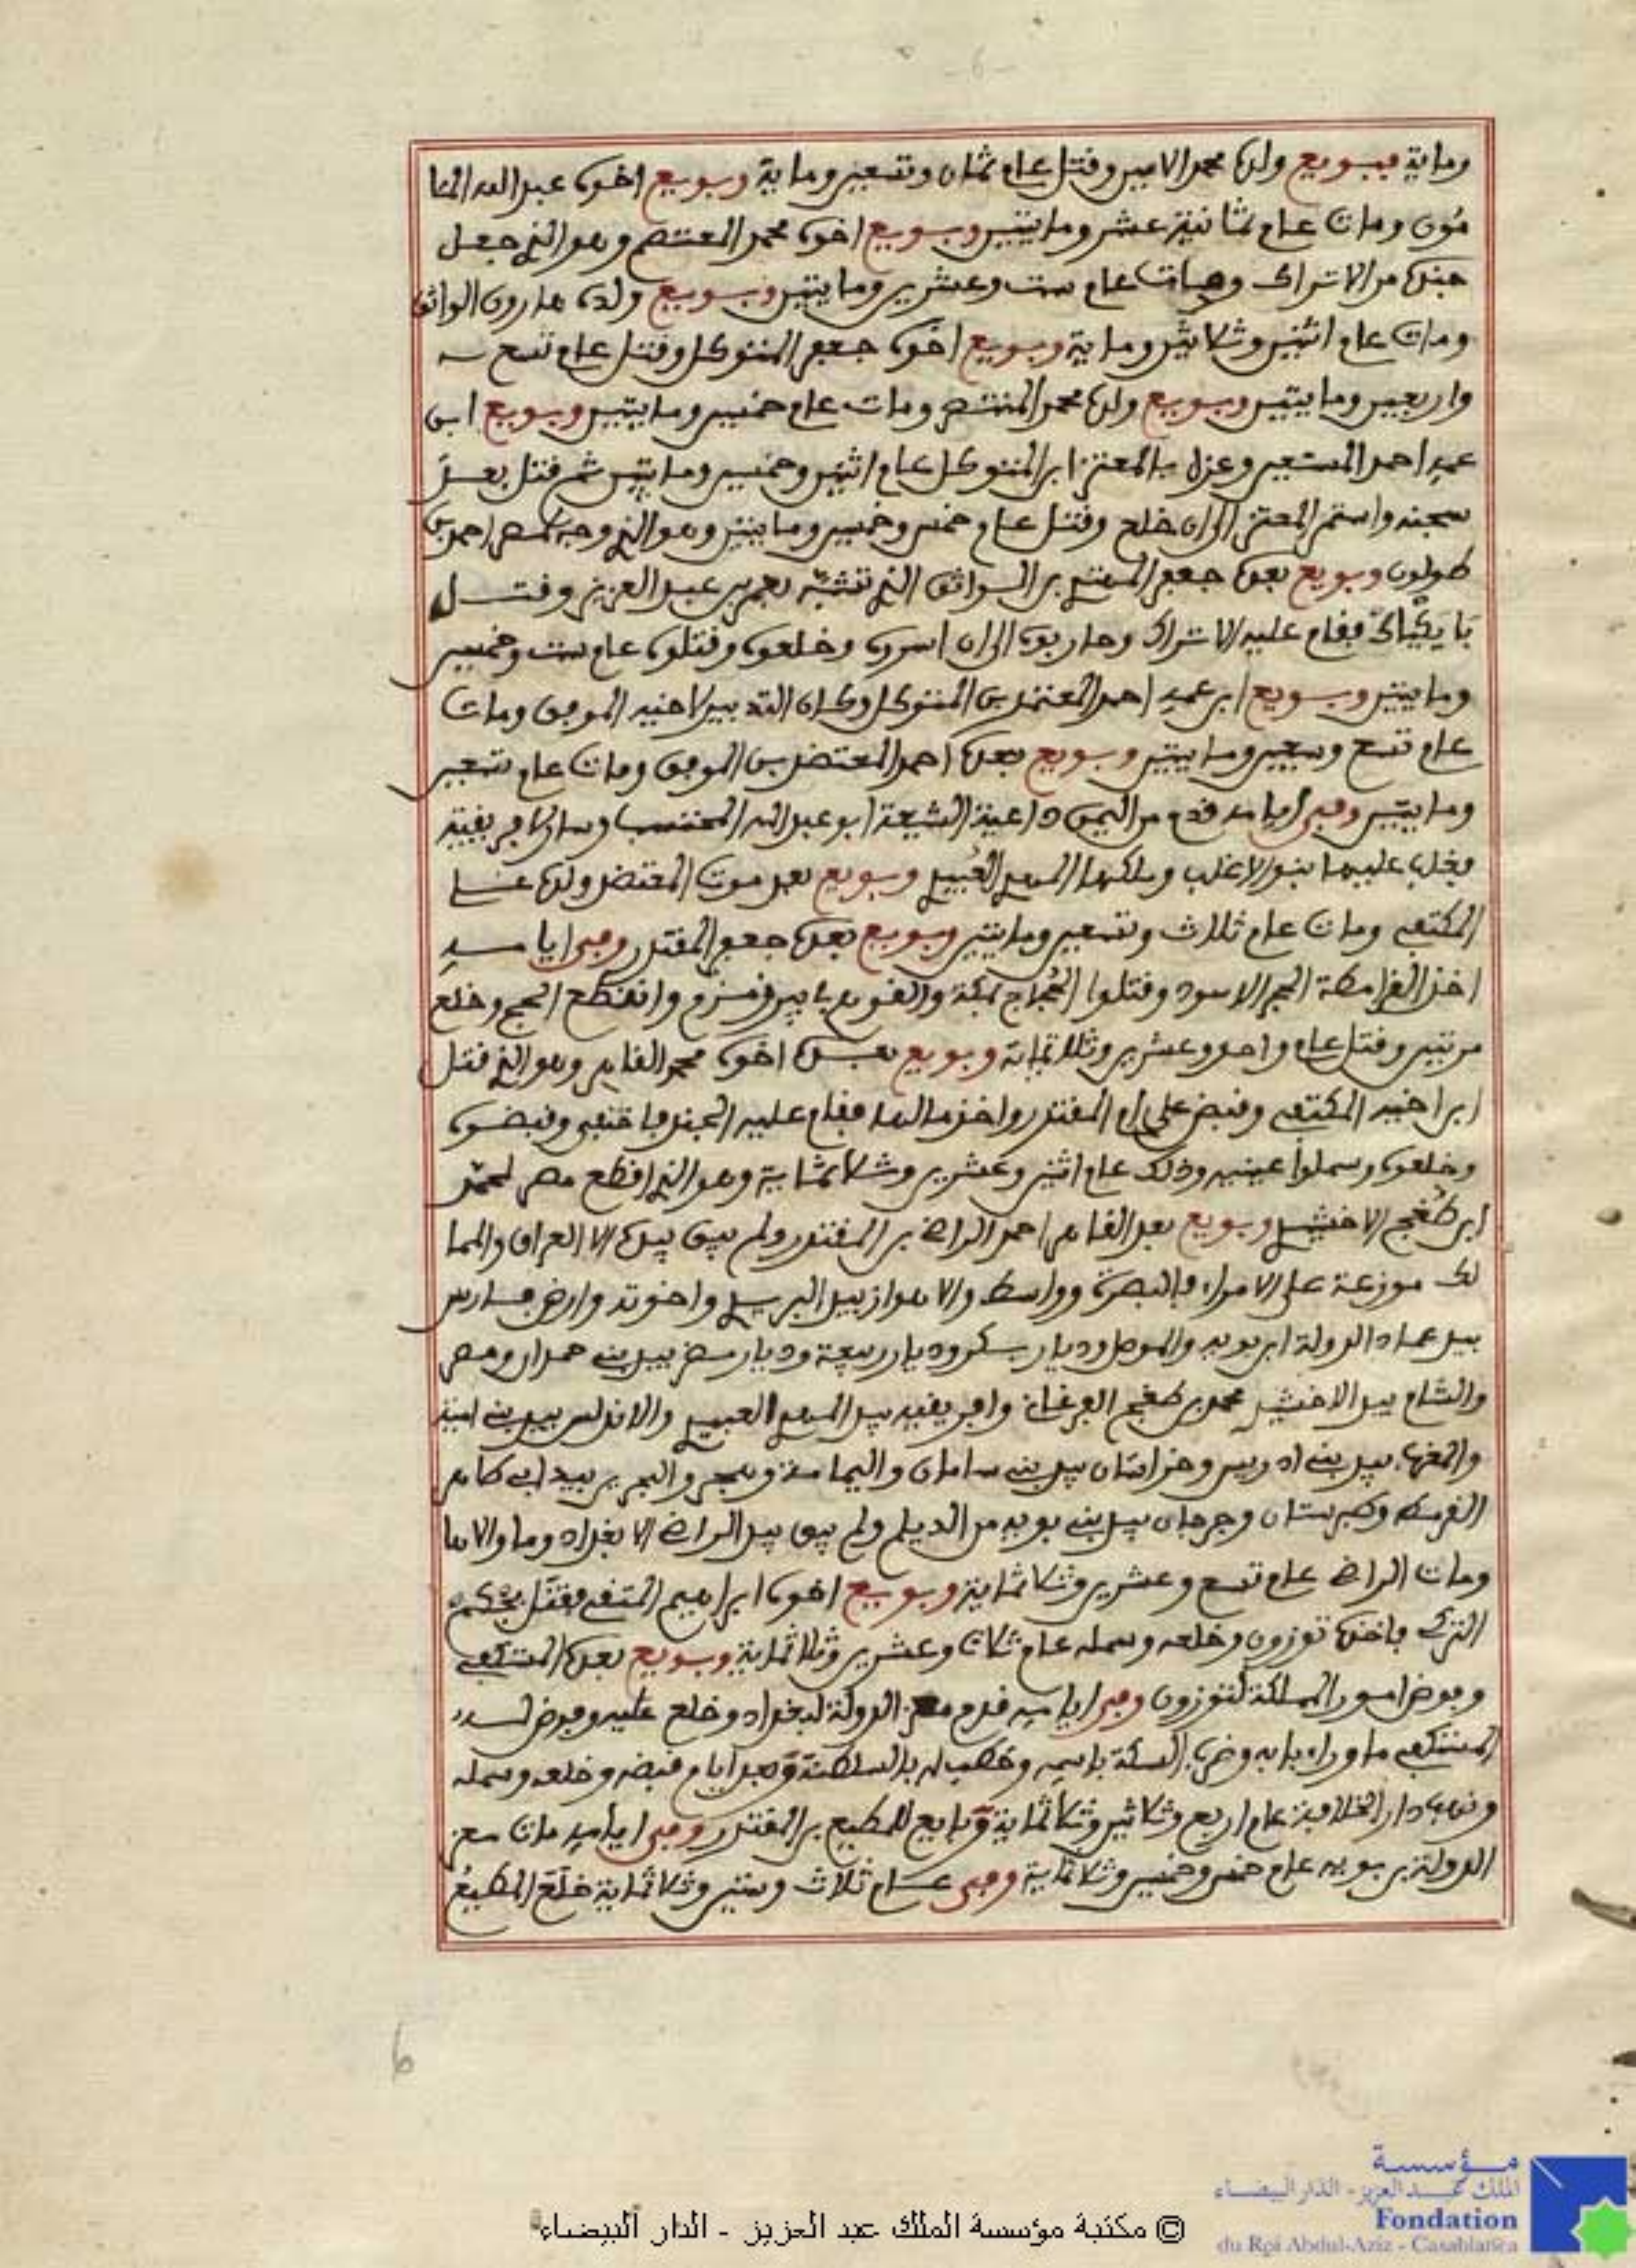 -6-
وماية فبويع ولده محمد الامين وقتل عام ثمان وتسعين وماية وبويع اخوه عبد الله الما
مون ومات عام ثمانية عشر ومايتين وبويع اخوه محمد المعتصم وهو الذي جعل
جنده من الاتراك ومات عام ست وعشرين ومايتين وبويع ولده هارون الواثق
ومات عام اثنين وثلاثين وماية وبويع اخوه جعفر المتوكل وقتل عام تسع
واربعين ومايتين وبويع ولده محمد المنتصر ومات عام خمسين ومايتين وبويع ابن
عمه احمد المستعين وعزل بالمعتز ابن المتوكل عام اثنين وخمسين ومايتين ثم قتل بعد
سجنه واستمر المعتز الى ان خلع وقتل عام خمس وخمسين ومايتين وهو الذي وجه لمصر احمد بن
طولون وبويع بعده جعفر المهتدي بن الواثق الذي تشبه بعمر بن عبد العزيز وقتل
بايكياك فقام عليه الاتراك وحاربوه الى ان اسروه وخلعوه وقتلوه عام ست وخمسين
ومايتين وبويع ابن عمه احمد المعتمد بن المتوكل وكان التدبير لاخيه الموفق ومات
عام تسع وسبعين ومايتين وبويع بعده احمد المعتضد بن الموفق ومات عام تسعين
ومايتين وفي ايامه قدم من اليمن داعية الشيعة ابو عبد الله المحتسب وسار لافريقية
فغلب عليها بنو الاغلب وملكها المهدي العبيدي وبويع بعد موت المعتضد ولده علي
المكتفي ومات عام ثلاث وتسعين ومايتين وبويع بعده جعفر المقتدر وفي ايامه
اخذ القرامطة الحجر الاسود وقتلوا الحجاج بمكة والقوهم بابير زمزم وانقطع الحج وخلع
مرتين وقتل عام واحد وعشرين وثلاثماية وبويع بعده اخوه محمد القاهر وهو الذي قتل
ابن اخيه المكتفي وقبض على ام المقتدر واخذ مالها فقام عليه الجند فاختفى وقبضوه
وخلعوه وسملوا عينيه وذلك عام اثنين وعشرين وثلاثماية وهو الذي اقطع مصر لمحمد
ابن طغج الاخشيدي وبويع بعد القاهر احمد الراضي بن المقتدر ولم يبق بيده الا العراق والمما
لك موزعة على الامراء فالبصرة وواسط والاهواز بيد البريدي واخوته وارض فارس
بيد عماد الدولة ابن بويه والموصل وديار بكر وديار ربيعة وديار مضر بيد بني حمدان ومصر
والشام بيد الاخشيد محمد بن طغج الفرغاني وافريقية بيد المهدي العبيدي والاندلس بيد بني امية
والمغرب بيد بني ادريس وخراسان بيد بني سامان واليمامة وهجر والبحرين بيد ابي طاهر
القرمطي وطبرستان وجرجان بيد بني بويه من الديلم ولم يبق بيد الراضي الا بغداد وما والاها
ومات الراضي عام تسع وعشرين وثلاثماية وبويع اخوه ابراهيم المتقي فقتل بجكم
التركي فاخذه توزون وخلعه وسمله عام ثلاث وعشرين وثلاثماية وبويع بعده المستكفي
وفوض امور المملكة لتوزون وفي ايامه قدم معز الدولة لبغداد وخلع عليه وفوض له
المستكفي ما وراء بابه وضرب السكة باسمه وخطب له بالسلطنة وبعد ايام قبضه وخلعه وسمله
ونهب دار الخلافة عام اربع وثلاثين وثلاثماية وبايع للمطيع بن المقتدر وفي ايامه مات معز
الدولة بن بويه عام خمس وخمسين وثلاثماية وفي عام ثلاث وستين وثلاثماية خلع المطيع
6
مؤسسة
الملك عبد العزيز - الدار البيضاء
Fondation
du Roi Abdul-Aziz - Casablanca
© مكتبة مؤسسة الملك عبد العزيز - الدار البيضاء